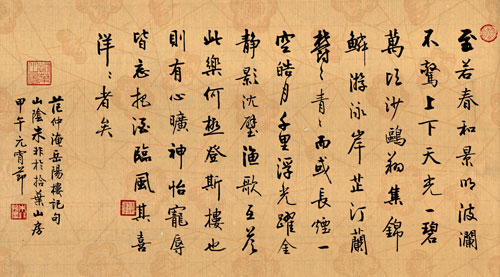 至若春和景明波瀾
不驚上下天光一碧
萬頃沙鷗翔集錦
鱗游泳岸芷汀蘭
鬱〻青〻而或長煙一
空皓月千里浮光躍金
静影沈璧漁歌互答
此樂何極登斯樓也
則有心曠神怡寵辱
皆忘把酒臨風其喜
洋〻者矣
范仲淹岳陽樓記句
山陰來非於拾葉山房
甲午元宵節